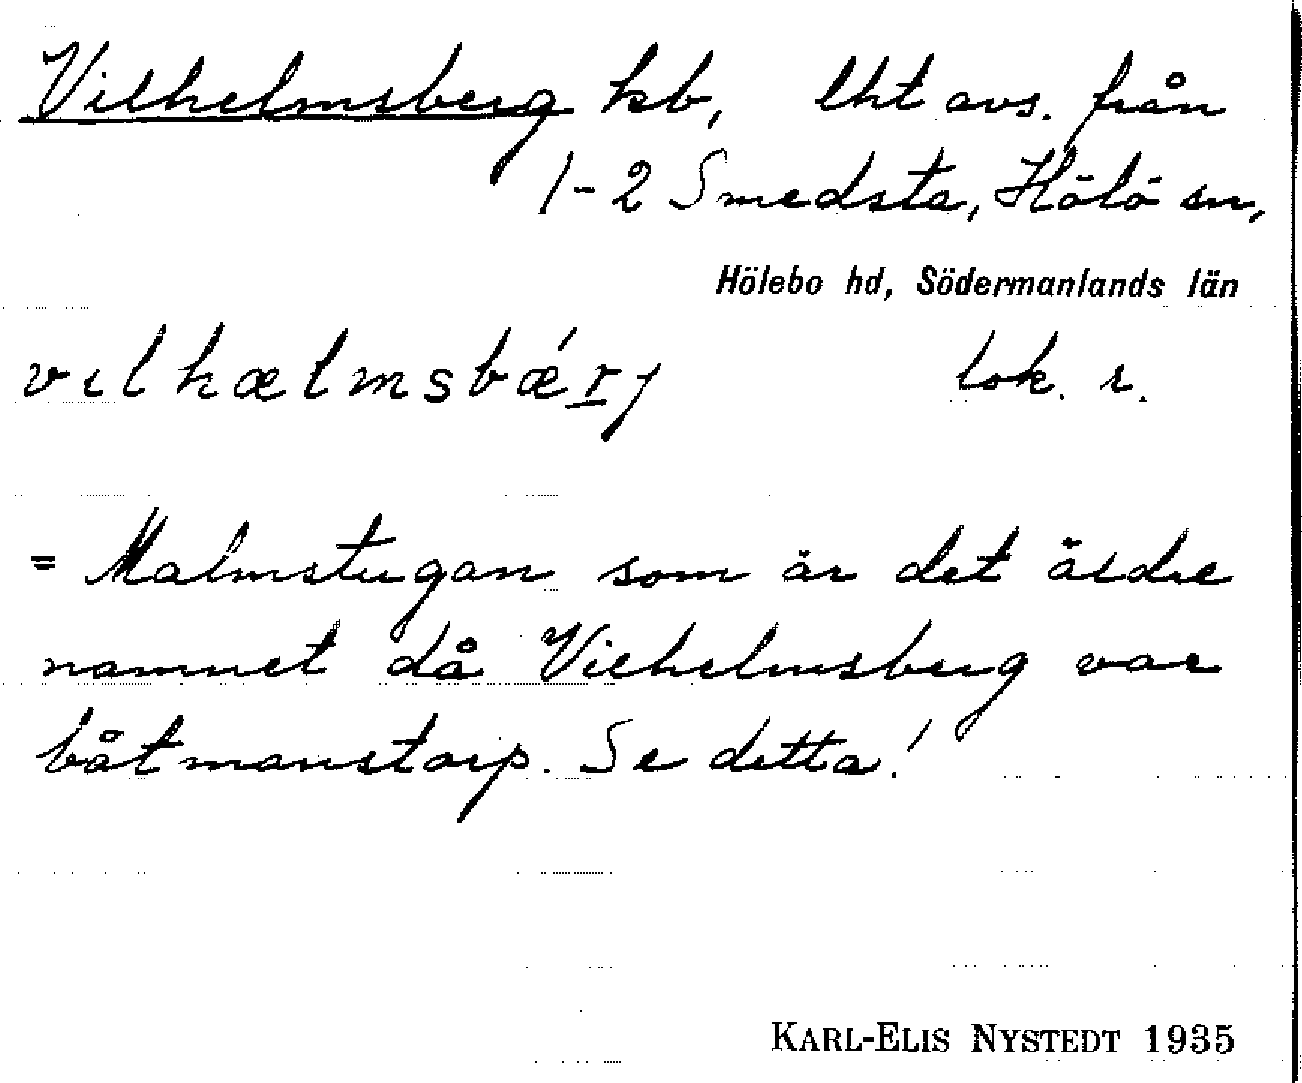 Vilhelmsberg hb, lht avs. från
1-2 Smedsta, Hölö sn,
Hölebo hd, Södermanlands län
vılhælmsbǽrj lok. r.
= Malmstugan som är det äldre
namnet då Vilhelmsberg var
båtmanstorp. Se detta!
KARL-ELIS NYSTEDT 1935